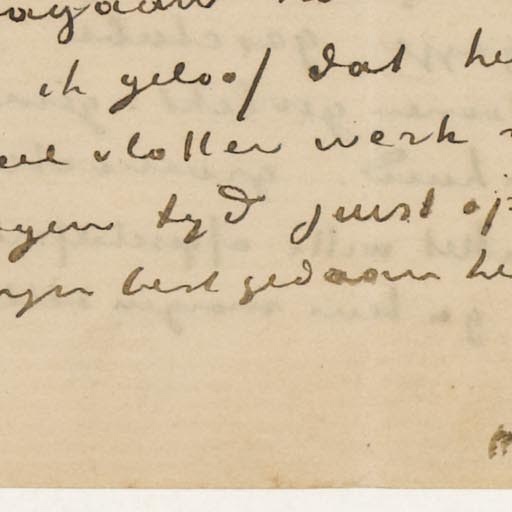 ik geloof dat he
eel vlotter werk
tyd juist op
myn best gedaan he